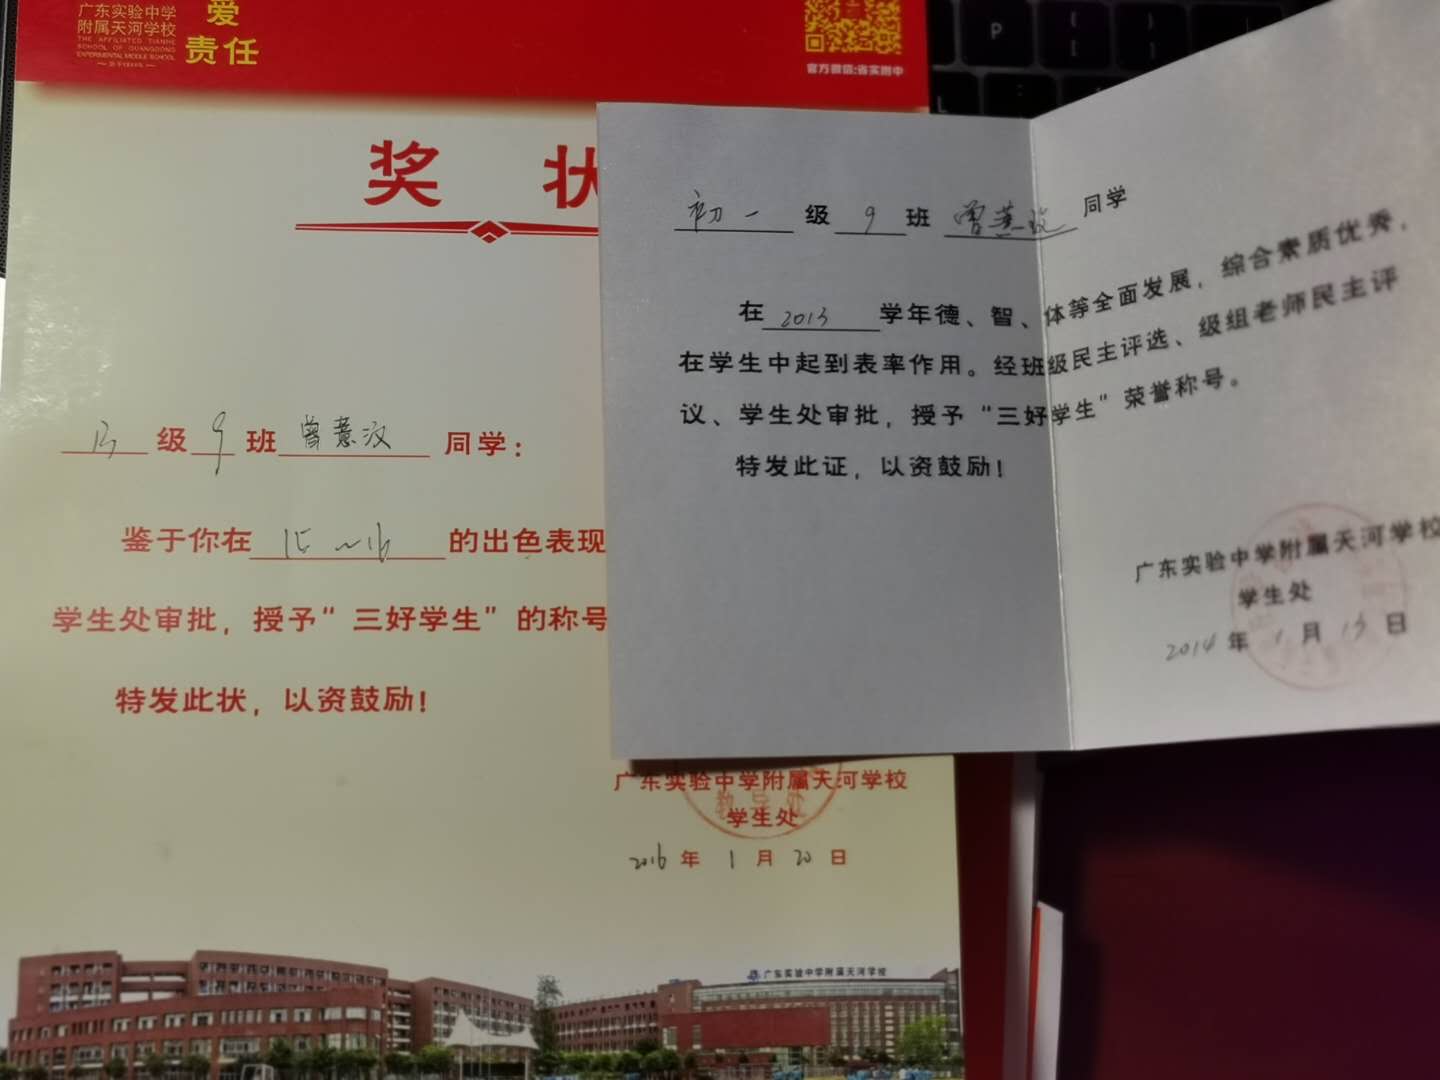 广东实验中学
附属天河学校
THE AFFILIATED TIANHE
SCHOOL OF GUANGDONG
EXPERIMENTAL MIDDLE SCHOOL
爱
责任
官方微信:省实附中
P
L
奖 状
13 级 9 班 曾慧汶 同学：
鉴于你在 15~16 的出色表现
学生处审批，授予“三好学生”的称号
特发此状，以资鼓励！
广东实验中学附属天河学校
教导处
学生处
2016 年 1 月 20 日
广东实验中学附属天河学校
初一 级 9 班 曾慧汶 同学
在 2013 学年德、智、体等全面发展，综合素质优秀，
在学生中起到表率作用。经班级民主评选、级组老师民主评
议、学生处审批，授予“三好学生”荣誉称号。
特发此证，以资鼓励！
广东实验中学附属天河学校
学生处
2014 年 1 月 13 日